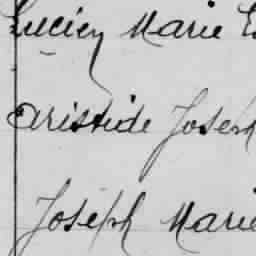 Lucien Marie E
Aristide Joseph
Joseph Marie